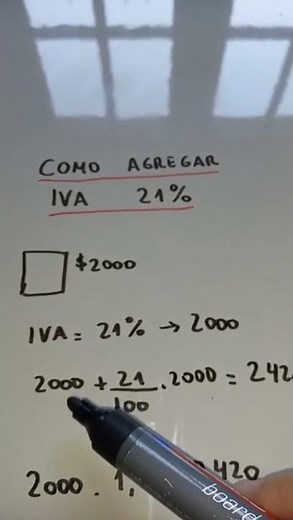 COMO AGREGAR
IVA 21%
$2000
IVA = 21% → 2000
2000 + 21/100 . 2000 = 242
2000 . 1, 2420
board